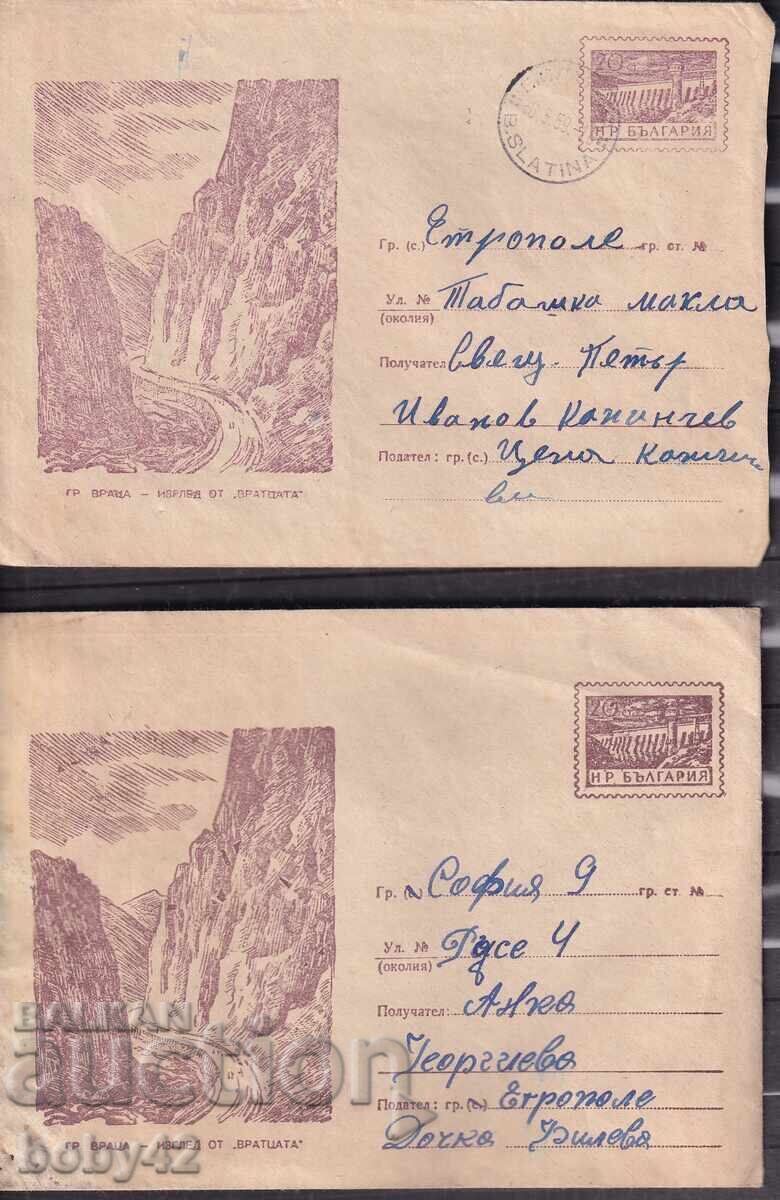 20
НР БЪЛГАРИЯ
B. SLATINA
Гр. (с.) Етрополе гр. ст. №
Ул. № Табашка махла
(околия)
Получател Свещ. Петър
Иванов Капинчев
Подател: гр. (с.) Цена
ГР. ВРАЦА – ИЗГЛЕД ОТ „ВРАТЦАТА“
20
НР БЪЛГАРИЯ
Гр. София 9 гр. ст. №
Ул. № Русе 4
(околия)
Получател: Анка
Георгиева
Подател: гр. Етрополе
Дочка Вилева
ГР. ВРАЦА – ИЗГЛЕД ОТ „ВРАТЦАТА“
BALKAN
auction
boby42